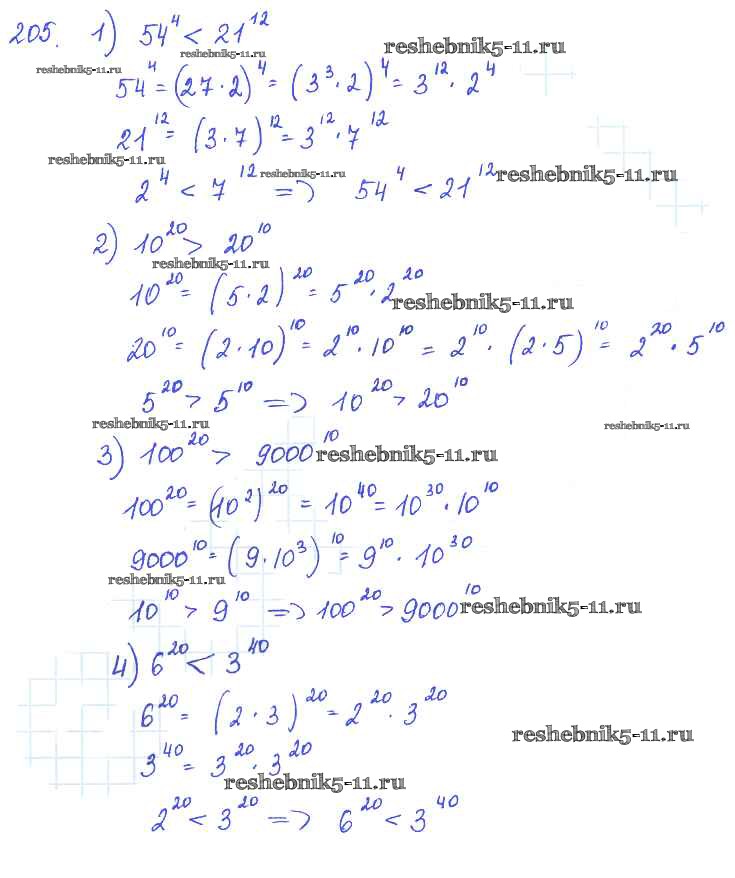 205. 1) 54⁴ < 21¹²
reshebnik5-11.ru
reshebnik5-11.ru
reshebnik5-11.ru
54⁴ = (27·2)⁴ = (3³·2)⁴ = 3¹²·2⁴
21¹² = (3·7)¹² = 3¹²·7¹²
reshebnik5-11.ru
reshebnik5-11.ru
2⁴ < 7¹² => 54⁴ < 21¹²
reshebnik5-11.ru
2) 10²⁰ > 20¹⁰
reshebnik5-11.ru
10²⁰ = (5·2)²⁰ = 5²⁰·2²⁰
reshebnik5-11.ru
20¹⁰ = (2·10)¹⁰ = 2¹⁰·10¹⁰ = 2¹⁰·(2·5)¹⁰ = 2²⁰·5¹⁰
5²⁰ > 5¹⁰ => 10²⁰ > 20¹⁰
reshebnik5-11.ru
reshebnik5-11.ru
3) 100²⁰ > 9000¹⁰
reshebnik5-11.ru
100²⁰ = (10²)²⁰ = 10⁴⁰ = 10³⁰·10¹⁰
9000¹⁰ = (9·10³)¹⁰ = 9¹⁰·10³⁰
reshebnik5-11.ru
10¹⁰ > 9¹⁰ => 100²⁰ > 9000¹⁰
reshebnik5-11.ru
4) 6²⁰ < 3⁴⁰
6²⁰ = (2·3)²⁰ = 2²⁰·3²⁰
reshebnik5-11.ru
3⁴⁰ = 3²⁰·3²⁰
reshebnik5-11.ru
2²⁰ < 3²⁰ => 6²⁰ < 3⁴⁰